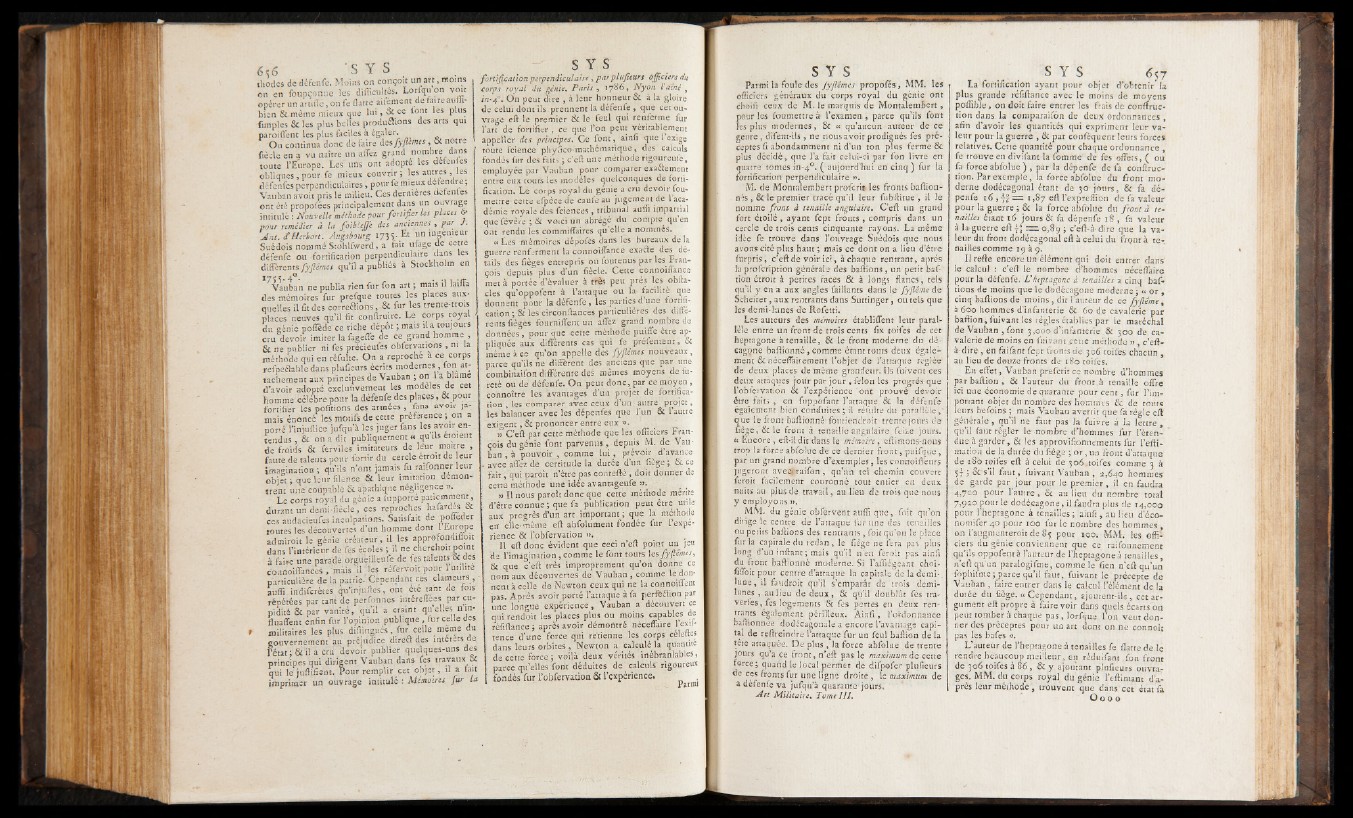 656 SYS
thodes de défense. Moins on conçoit un art, moins
on en soupçonne les difficultés. Lorsqu'on voit
opérer un artiste, on se flatte aisément de faire aussi-
bien & même mieux que lui, & ce sont les plus
simples & les plus belles productions des arts qui
paroissent les plus faciles à égaler.
On continua donc de faire des systêmes, & notre
siècle en a vu naître un assez grand nombre dans
toute l'Europe. Les uns ont adopté les défenses
obliques, pour se mieux couvrir; les autres, les
défenses perpendiculaires, pour se mieux défendre;
Vauban avoit pris le milieu. Ces dernières défenses
ont été proposées principalement dans un ouvrage
intitulé: Nouvelle méthode pour fortifier les places &
pour remédier à la foiblesse des anciennes, par J.
Ant. d'Herbort. Augsbourg 1735. Et un ingénieur
Suédois nommé Stohlswerd, a fait usage de cette
défense ou fortification perpendiculaire dans les
différents systêmes qu'il a publiés à Stockholm en
1755. 4°.
Vauban ne publia rien sur son art; mais il laissa
des mémoires sur presque toutes les places aux-
quelles il fit des corrections, & sur les trente-trois
places neuves qu'il fit construire. Le corps royal
du génie possède ce riche dépôt; mais il a toujours
cru devoir imiter la sagesse de ce grand homme,
& ne publier ni ses précieuses observations, ni la
méthode qui en résulte. On a reproché à ce corps
respectable dans plusieurs écrits modernes, son at-
tachement aux principes de Vauban; on l'a blâmé
d'avoir adopté exclusivement les modèles de cet
homme célèbre pour la défense des places, & pour
fortifier les positions des armées, sans avoir ja-
mais énoncé les motifs de cette préférence; on a
porté l'injustice jusqu'à les juger sans les avoir en-
tendus, & on a dit publiquement « qu'ils étoient
de froids & serviles imitateurs de leur maître,
faute de talents pour sortir du cercle étroit de leur
imagination; qu'ils n'ont jamais su raisonner leur
objet; que leur silence & leur imitation démon-
trent une coupable & apathique négligence ».
Le corps royal du génie a supporté patiemment,
durant un demi-siècle, ces reproches hasardés &
ces audacieuses inculpations. Satisfait de posséder
toutes les découvertes d'un homme dont l'Europe
admiroit le génie créateur, il les approfondissoit
dans l'intérieur de ses écoles; il ne cherchoit point
à faire une parade orgueilleuse de ses talents & des
connoissances, mais il les réservoit pour l'utilité
particulière de la patrie. Cependant ces clameurs,
aussi indiscrètes qu'injustes, ont été tant de fois
répétées par tant de personnes intéressées par cu-
pidité & par vanité, qu'il a craint qu'elles n'in-
fluassent enfin sur l'opinion publique, sur celle des
militaires les plus distingués, sur celle même du
gouvernement au préjudice direct des intérêts de
l'état; & il a cru devoir publier quelques-uns des
principes qui dirigent Vauban dans ses travaux &
qui le justifient. Pour remplir cet objet, il a fait
imprimer un ouvrage intitulé: Mémoires sur la
SYS
fortification perpendiculaire, par plusieurs officiers du
corps royal du génie. Paris, 1786, Nyon l'aîné,
in-4°. On peut dire, à leur honneur & à la gloire
de celui dont ils prennent la défense, que cet ou-
vrage est le premier & le seul qui renferme sur
l'art de fortifier, ce que l'on peut véritablement
appeller des principes. Ce sont, ainsi que l'exige
toute science physico-mathématique, des calculs
fondés sur des faits; c'est une méthode rigoureuse,
employée par Vauban pour comparer exactement
entre eux tous les modèles quelconques de forti-
fication. Le corps royal du génie a cru devoir sou-
mettre cette espèce de cause au jugement de l'aca-
démie royale des sciences, tribunal aussi impartial
que sévère; & voici un abrégé du compte qu'en
ont rendu les commissaires qu'elle a nommés.
« Les mémoires déposés dans les bureaux de la
guerre renferment la connoissance exacte des dé-
tails des sièges entrepris ou soutenus par les Fran-
çois depuis plus d'un siècle. Cette connoissance
met à portée d'évaluer à très peu près les obsta-
cles qu'opposent à l'attaque ou la facilité que
donnent pour la défense, les parties d'une fortifi-
cation; & les circonstances particulières des diffé-
rents sièges fournissent un assez grand nombre de
données, pour que cette méthode puisse être ap-
pliquée aux différents cas qui se présentent, &
même à ce qu'on appelle des systêmes nouveaux,
parce qu'ils ne diffèrent des anciens que par une
combinaison différente des mêmes moyens de su-
reté ou de défense. On peut donc, par ce moyen,
connoître les avantages d'un projet de fortifica-
tion, les comparer avec ceux d'un autre projet,
les balancer avec les dépenses que l'un & l'autre
exigent, & prononcer entre eux ».
» C'est par cette méthode que les officiers Fran-
çois du génie sont parvenus, depuis M. de Vau-
ban, à pouvoir, comme lui, prévoir d'avance
avec assez de certitude la durée d'un siège; & ce
fait, qui paroît n'être pas contesté, doit donner de
cette méthode une idée avantageuse ».
» Il nous paroît donc que cette méthode mérite
d'être connue; que sa publication peut être utile
aux progrès d'un art important; que la méthode
en elle-même est absolument fondée sur l'expé-
rience & l'observation ».
Il est donc évident que ceci n'est point un jeu
de l'imagination, comme le sont tous les systêmes,
& que c'est très improprement qu'on donne ce
nom aux découvertes de Vauban, comme le don-
nent à celle de Newton ceux qui ne la connoissent
pas. Après avoir porté l'attaque à sa perfection par
une longue expérience, Vauban a découvert ce
qui rendoit les places plus ou moins capables de
résistance; après avoir démontré nécessaire l'exis-
tence d'une force qui retienne les corps célestes
dans leurs orbites, Newton a calculé la quantité
de cette force; voilà deux vérités inébranlables,
parce qu'elles sont déduites de calculs rigoureux
fondés sur l'observation & l'expérience.
Parmi
SYS
Parmi la foule des systêmes proposés, MM. les
officiers généraux du corps royal du génie ont
choisi ceux de M. le marquis de Montalembert,
pour les soumettre à l'examen, parce qu'ils sont
les plus modernes, & « qu'aucun auteur de ce
genre, disent-ils, ne nous avoit prodigués ses pré-
ceptes si abondamment ni d'un ton plus ferme &
plus décidé, que l'a fait celui-ci par son livre en
quatre tomes in-4°. (aujourd'hui en cinq) sur la
fortification perpendiculaire ».
M. de Montalembert proscrit les fronts bastion-
nés, & le premier tracé qu'il leur substitue, il le
nomme front à tenaille angulaire. C'est un grand
fort étoilé, ayant sept fronts, compris dans un
cercle de trois cents cinquante rayons. La même
idée se trouve dans l'ouvrage Suédois que nous
avons cité plus haut; mais ce dont on a lieu d'être
surpris, c'est de voir ici, à chaque rentrant, après
la proscription générale des bastions, un petit bas-
tion étroit à petites faces & à longs flancs, tels
qu'il y en a aux angles saillants dans le systême de
Scheiter, aux rentrants dans Suttinger, ou tels que
les demi-lunes de Rosetti.
Les auteurs des mémoires établissent leur paral-
lèle entre un front de trois cents six toises de cet
heptagone à tenaille, & le front moderne du dé-
cagone bastionné, comme étant tous deux égale-
ment & nécessairement l'objet de l'attaque réglée
de deux places de même grandeur. Ils suivent ces
deux attaques jour par jour, selon les progrès que
l'observation & l'expérience ont prouvé devoir
être faits, en supposant l'attaque & la défense
également bien conduites; il résulte du parallèle,
que le front bastionné soutiendroit trente jours de
siège, & le front à tenaille angulaire seize jours.
« Encore, est-il dit dans le mémoire, estimons-nous
trop la force absolue de ce dernier front, puisque,
par un grand nombre d'exemples, les connoisseurs
jugeront avec raison, qu'un tel chemin couvert
seroit facilement couronné tout entier en deux
nuits au plus de travail, au lieu de trois que nous
y employons ».
MM. du génie observent aussi que, soit qu'on
dirige le centre de l'attaque sur une des tenailles
ou petits bastions des rentrants, soit qu'on le place
sur la capitale du redan, le siège ne sera pas plus
long d'un instant; mais qu'il n'en seroit pas ainsi
du front bastionné moderne. Si l'assiégeant choi-
sissoit pour centre d'attaque la capitale de la demi-
lune, il faudroit qu'il s'emparât de trois demi-
lunes, au lieu de deux, & qu'il doublât ses tra-
verses, ses logements & ses pertes en deux ren-
trants également périlleux. Ainsi, l'ordonnance
bastionnée dodécagonale a encore l'avantage capi-
tal de restreindre l'attaque sur un seul bastion de la
tête attaquée. De plus, la force absolue de trente
jours qu'a ce front, n'est pas le maximum de cette
force; quand le local permet de disposer plusieurs
de ces fronts sur une ligne droite, le maximum de
la défense va jusqu'à quarante jours.
Art Militaire. Tome III.
SYS 657
La fortification ayant pour objet d'obtenir la
plus grande résistance avec le moins de moyens
possible, on doit faire entrer les frais de construc-
tion dans la comparaison de deux ordonnances,
afin d'avoir les quantités qui expriment leur va-
leur pour la guerre, & par conséquent leurs forces
relatives. Cette quantité pour chaque ordonnance,
se trouve en divisant la somme de ses efforts, (ou
sa force absolue), par la dépense de sa construc-
tion. Par exemple, la force absolue du front mo-
derne dodécagonal étant de 30 jours, & sa dé-
pense 16, 30/16 = 1,87 est l'expression de sa valeur
pour la guerre; & la force absolue du front à te-
nailles étant 16 jours & sa dépense 18, sa valeur
à la guerre est 16/18 = 0,89; c'est-à-dire que la va-
leur du front dodécagonal est à celui du front à te-
nailles comme 19 à 9.
Il reste encore un élément qui doit entrer dans
le calcul: c'est le nombre d'hommes nécessaire
pour la défense. L'heptagone à tenailles a cinq bas-
tions de moins que le dodécagone moderne; « or,
cinq bastions de moins, dit l'auteur de ce systême,
à 600 hommes d'infanterie & 60 de cavalerie par
bastion, suivant les règles établies par le maréchal
de Vauban, font 3,000 d'infanterie & 300 de ca-
valerie de moins en suivant cette méthode », c'est-
à-dire, en faisant sept fronts de 306 toises chacun,
au lieu de douze fronts de 180 toises.
En effet, Vauban prescrit ce nombre d'hommes
par bastion, & l'auteur du front à tenaille offre
ici une économie de quarante pour cent, sur l'im-
portant objet du nombre des hommes & de tous
leurs besoins; mais Vauban avertit que sa règle est
générale, qu'il ne faut pas la suivre à la lettre,
qu'il faut régler le nombre d'hommes sur l'éten-
due à garder, & les approvisionnements sur l'esti-
mation de la durée du siège; or, un front d'attaque
de 180 toises est à celui de 306 toises comme 3 à
5 1/10; & s'il faut, suivant Vauban, 2,640 hommes
de garde par jour pour le premier, il en faudra
4,720 pour l'autre, & au lieu du nombre total
7,920 pour le dodécagone, il faudra plus de 14,000
pour l'heptagone à tenailles; ainsi, au lieu d'éco-
nomiser 40 pour 100 sur le nombre des hommes,
on l'augmenteroit de 85 pour 100. MM. les offi-
ciers du génie conviennent que ce raisonnement
qu'ils opposent à l'auteur de l'heptagone à tenailles,
n'est qu'un paralogisme, comme le sien n'est qu'un
sophisme; parce qu'il faut, suivant le précepte de
Vauban, faire entrer dans le calcul l'élément de la
durée du siège. « Cependant, ajoutent-ils, cet ar-
gument est propre à faire voir dans quels écarts on
peut tomber à chaque pas, lorsque l'on veut don-
ner des préceptes pour un art dont on ne connoît
pas les bases ».
L'auteur de l'heptagone à tenailles se flatte de le
rendre beaucoup meilleur, en réduisant son front
de 306 toises à 86, & y ajoutant plusieurs ouvra-
ges. MM. du corps royal du génie l'estimant d'a-
près leur méthode, trouvent que dans cet état sa
Oooo